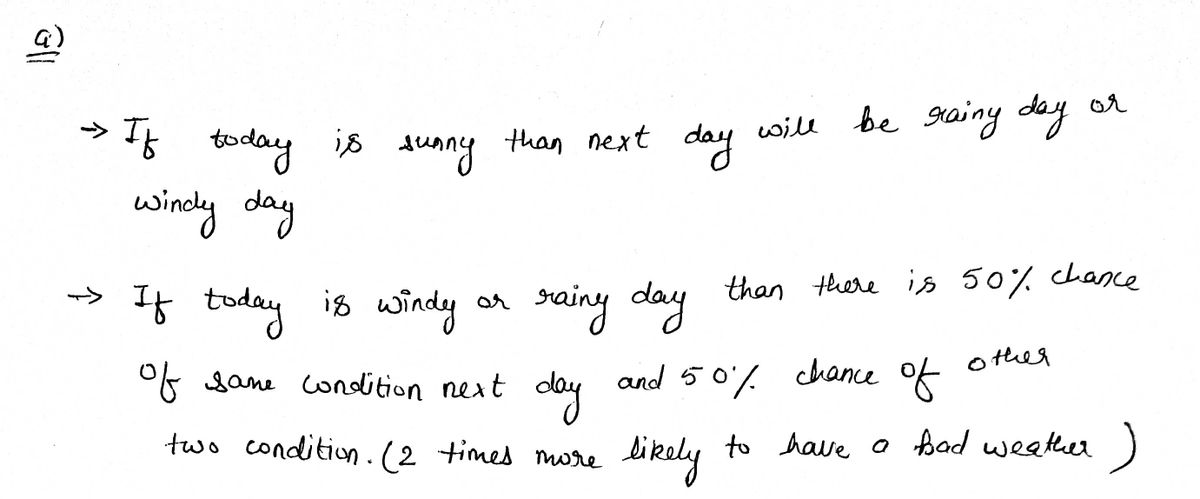 a)
→ If today is sunny than next day will be rainy day or
windy day
→ If today is windy or rainy day than there is 50% chance
of same condition next day and 50% chance of other
two condition. (2 times more likely to have a bad weather)